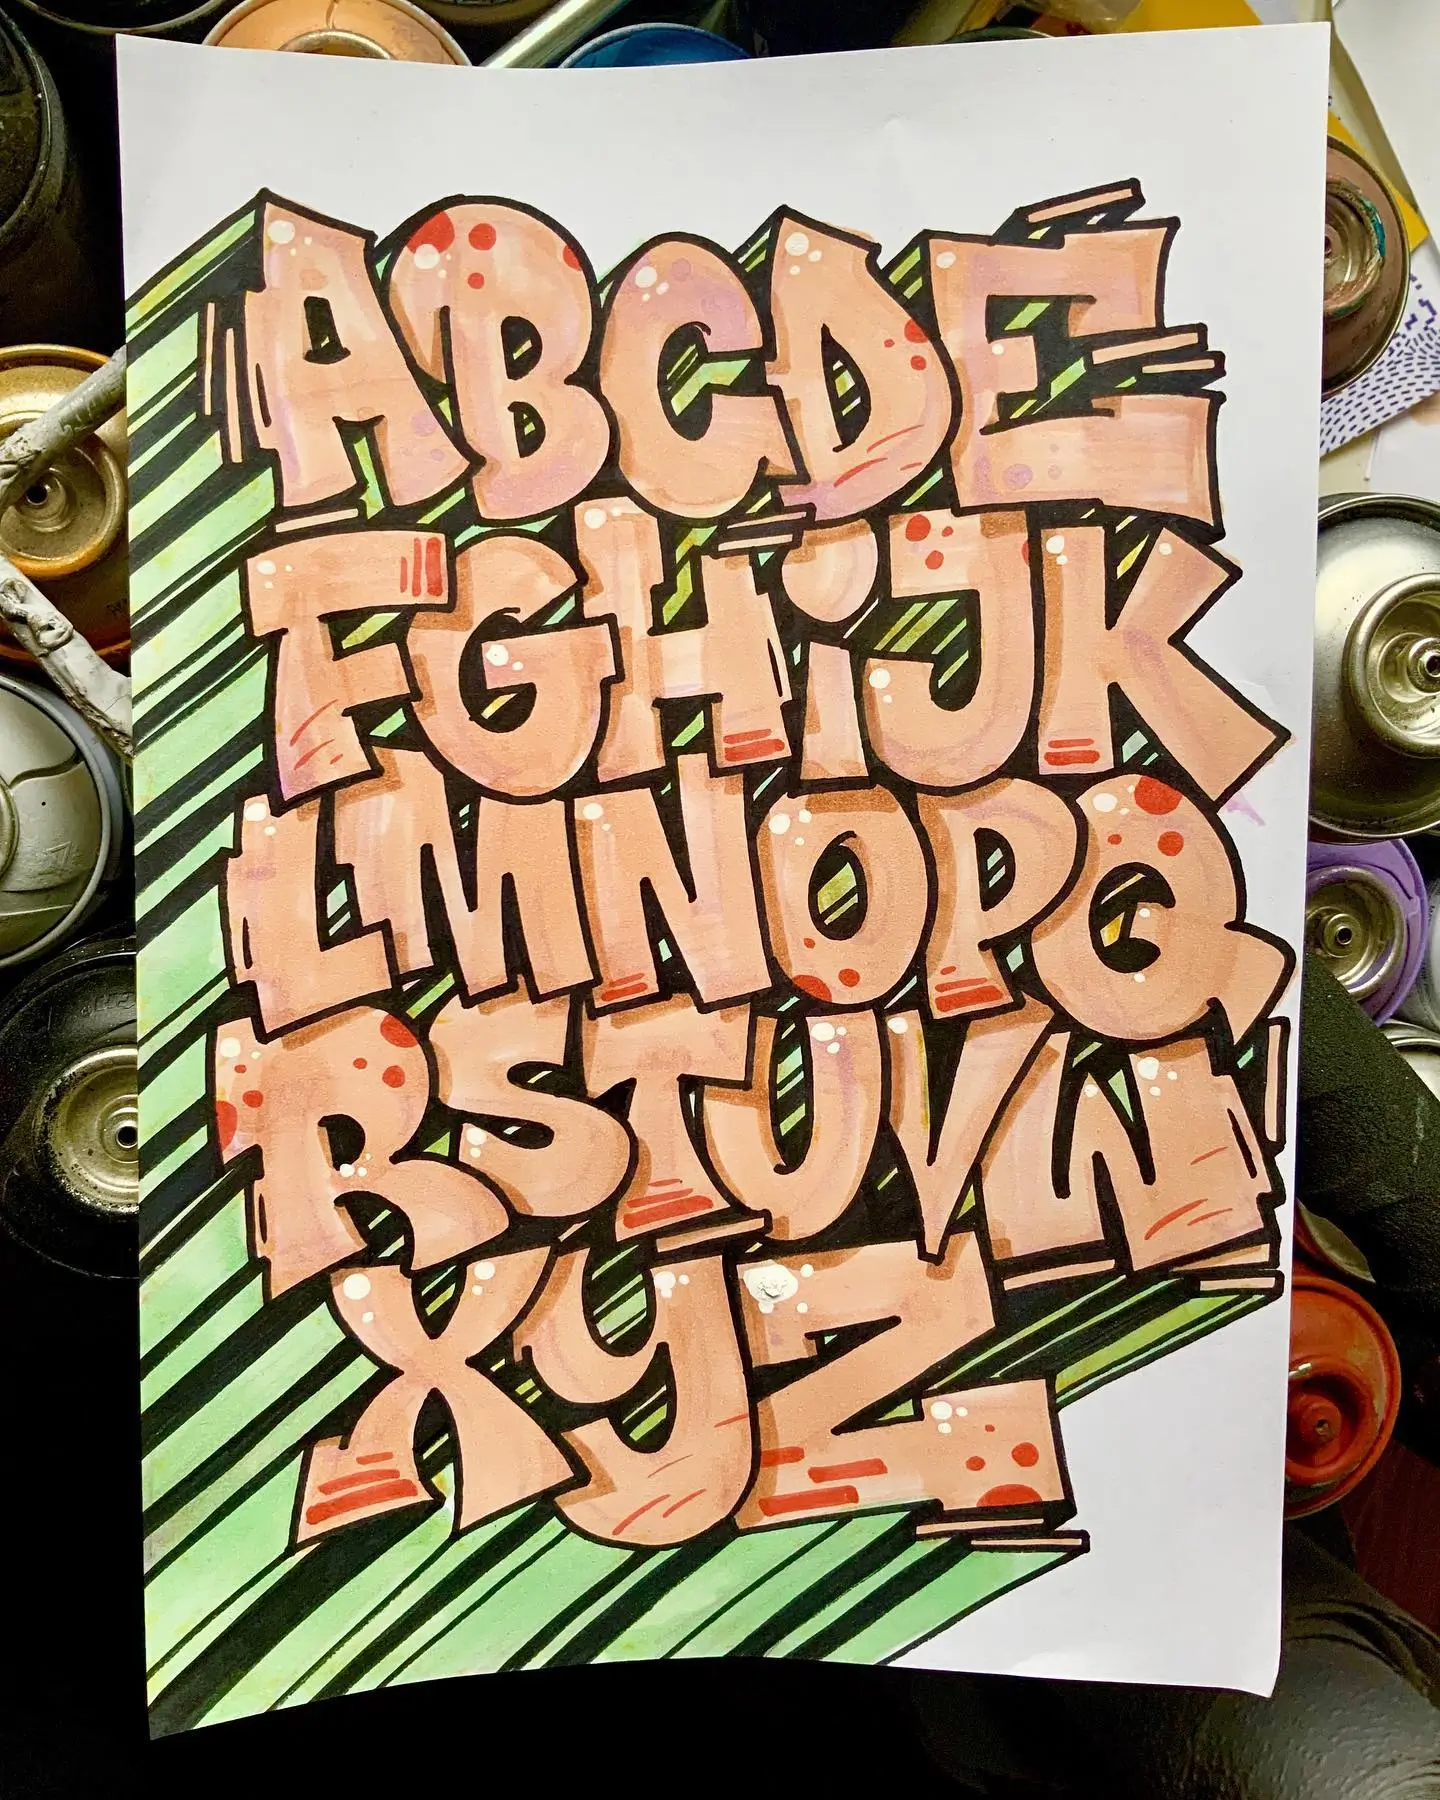 ABCDE
FGHiJK
LMNOPQ
RSTUVW
XyZ